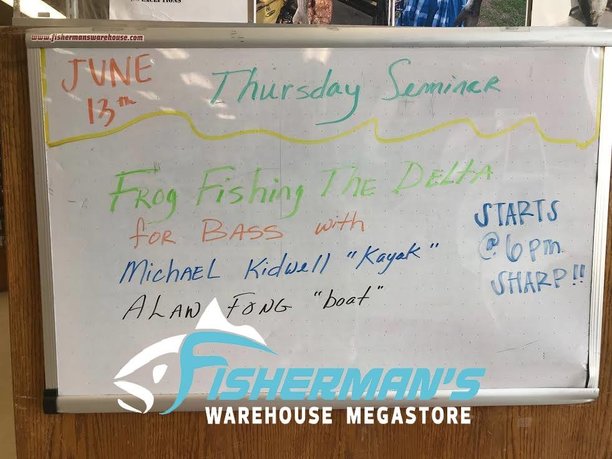 EXCEPTIONS
www.fishermanswarehouse.com
JUNE
13th
Thursday Seminer
Frog Fishing The Delta
for Bass with
Michael Kidwell "Kayak"
Alan Fong "boat"
STARTS
@ 6 pm
SHARP!!
FISHERMAN'S
WAREHOUSE MEGASTORE